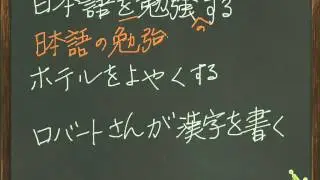 日本語を勉強する
の
日本語の勉強
ホテルをよやくする
ロバートさんが漢字を書く